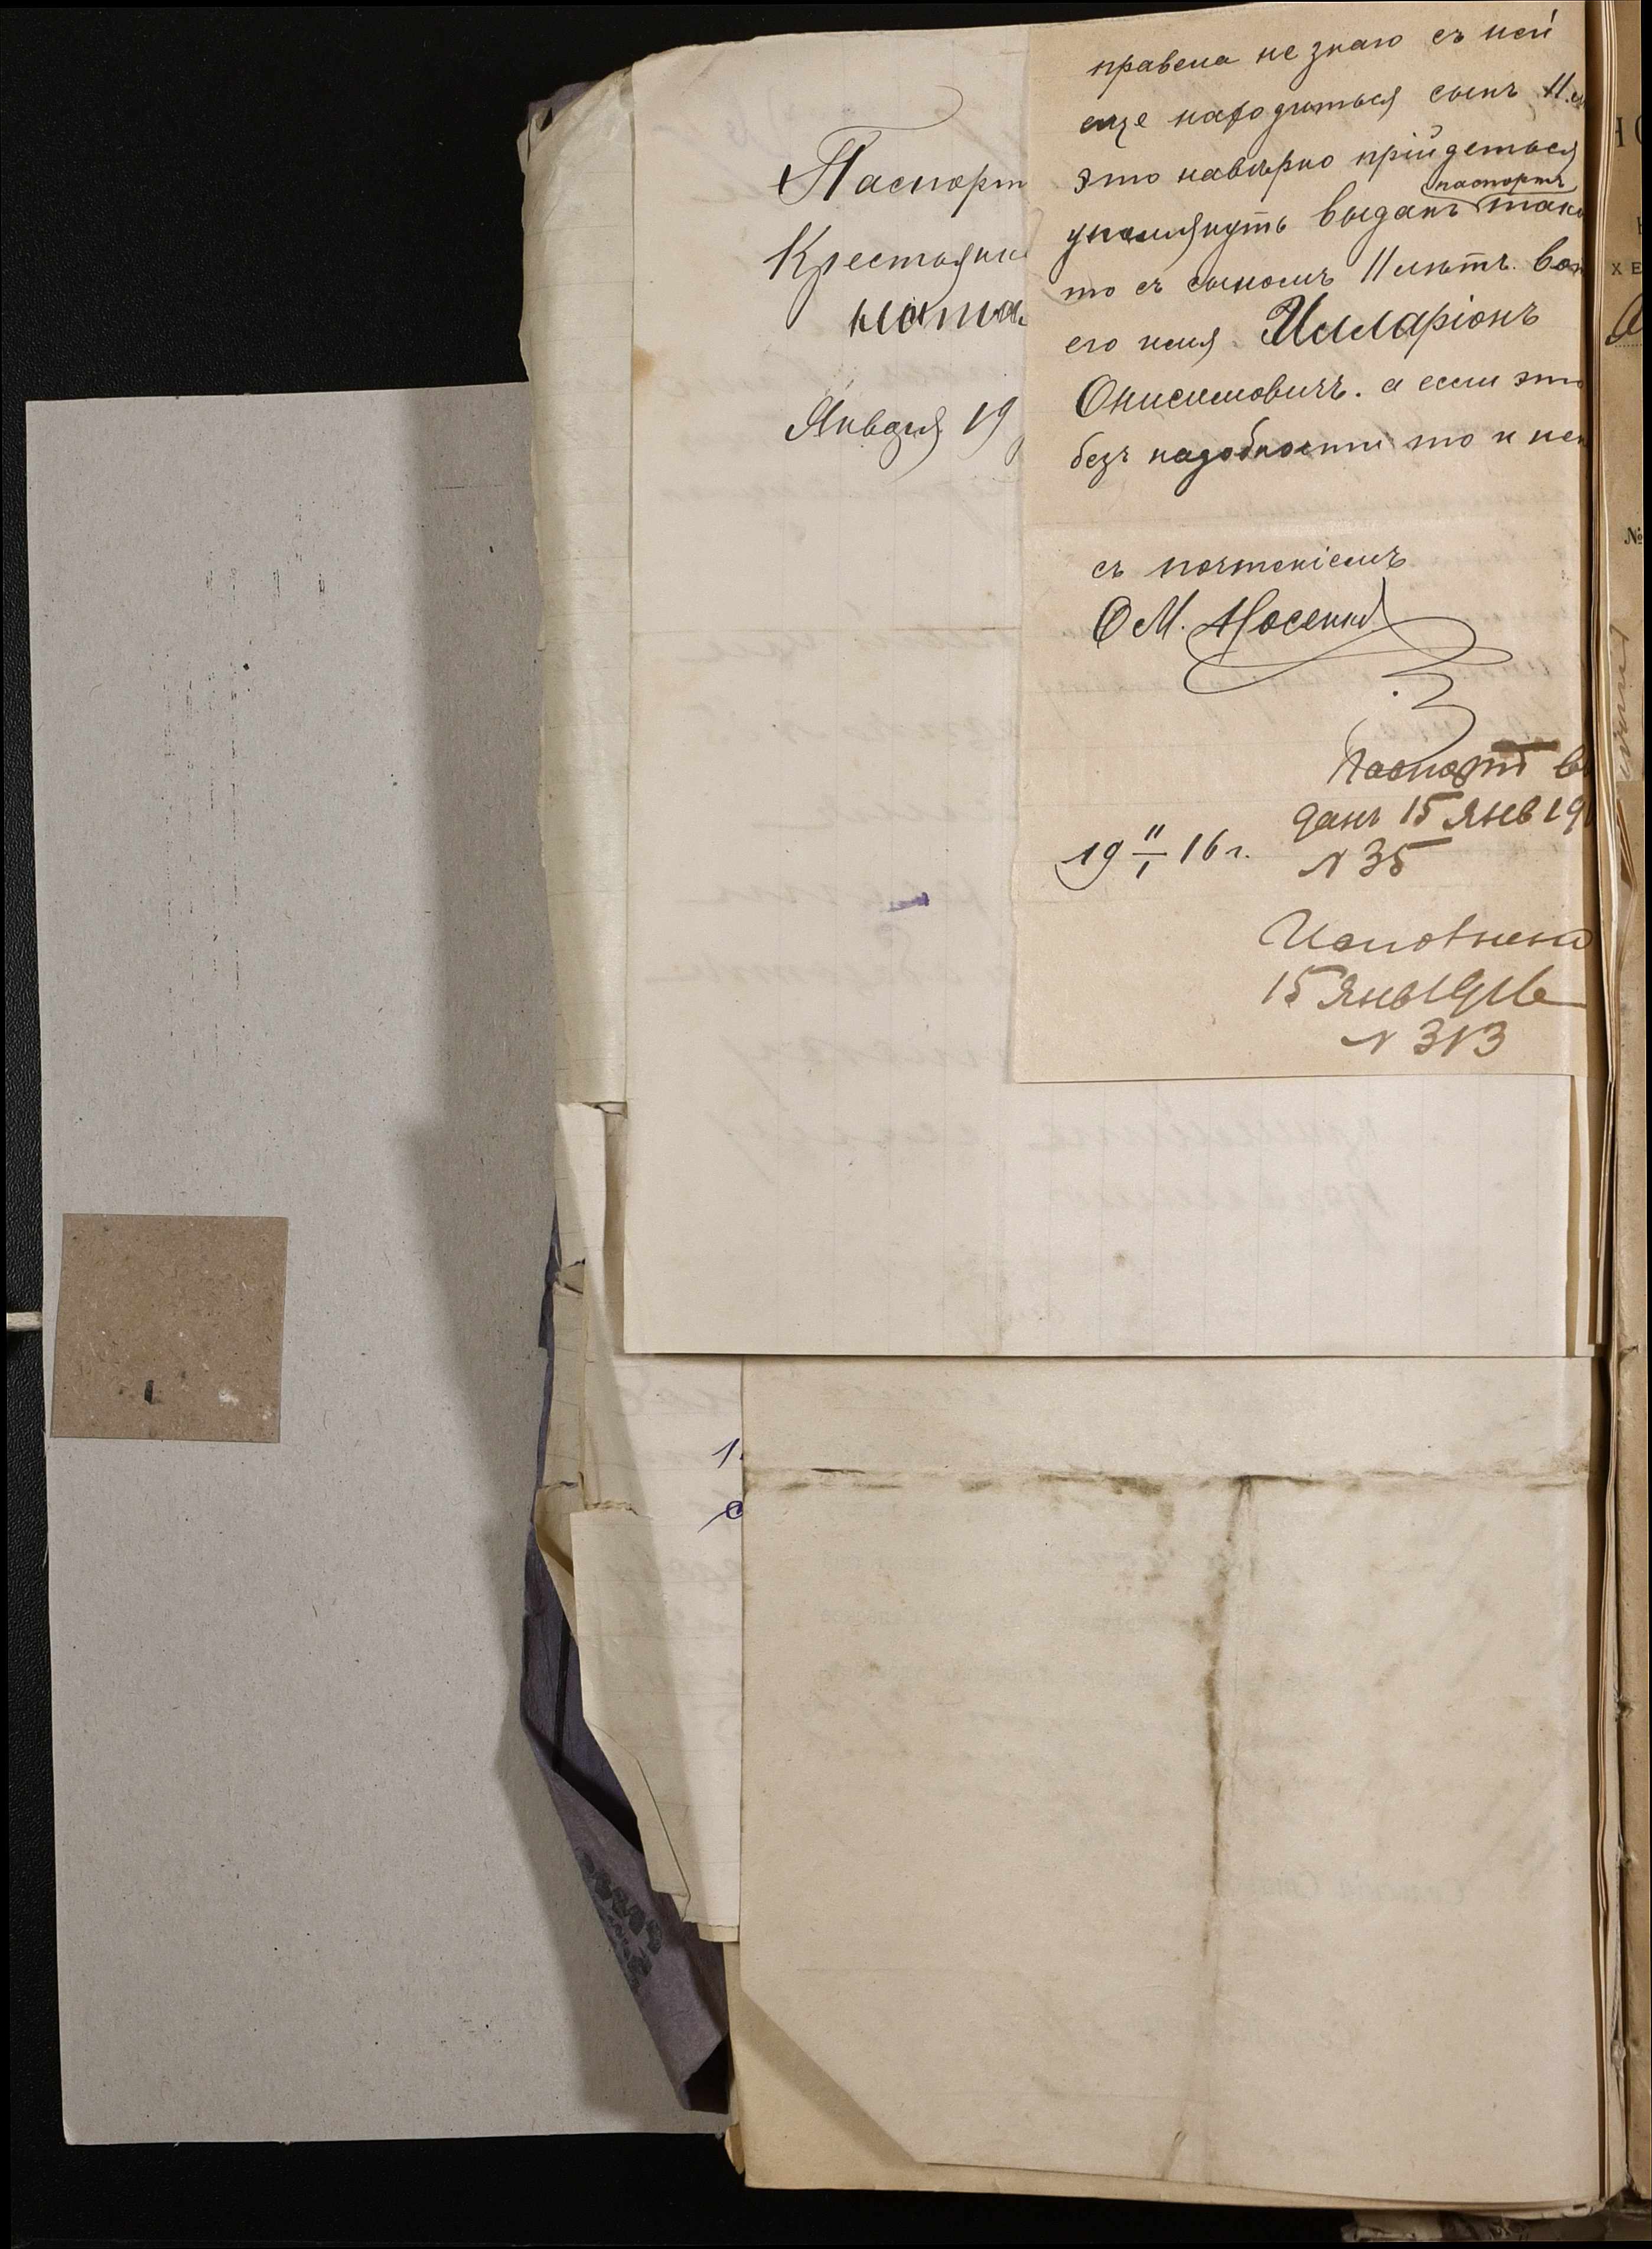 Паспорт
Крестьяни
Января 19
правена не знаю съ ней
еще находиться сынъ 11
это навѣрно прійдеться
паспортъ
упомянуть выданъ тако
то съ сыномъ 11 лѣтъ. вот
его имя Илларіонъ
Онисимовичъ. а если это
безъ надобности то и не
съ почтеніемъ
О М. Носенко
19 11/1 16 г.
Паспортъ вы
данъ 15 Янв 191
N 35
Исполнено
15 Янв 1916
N 313
1.
с
№